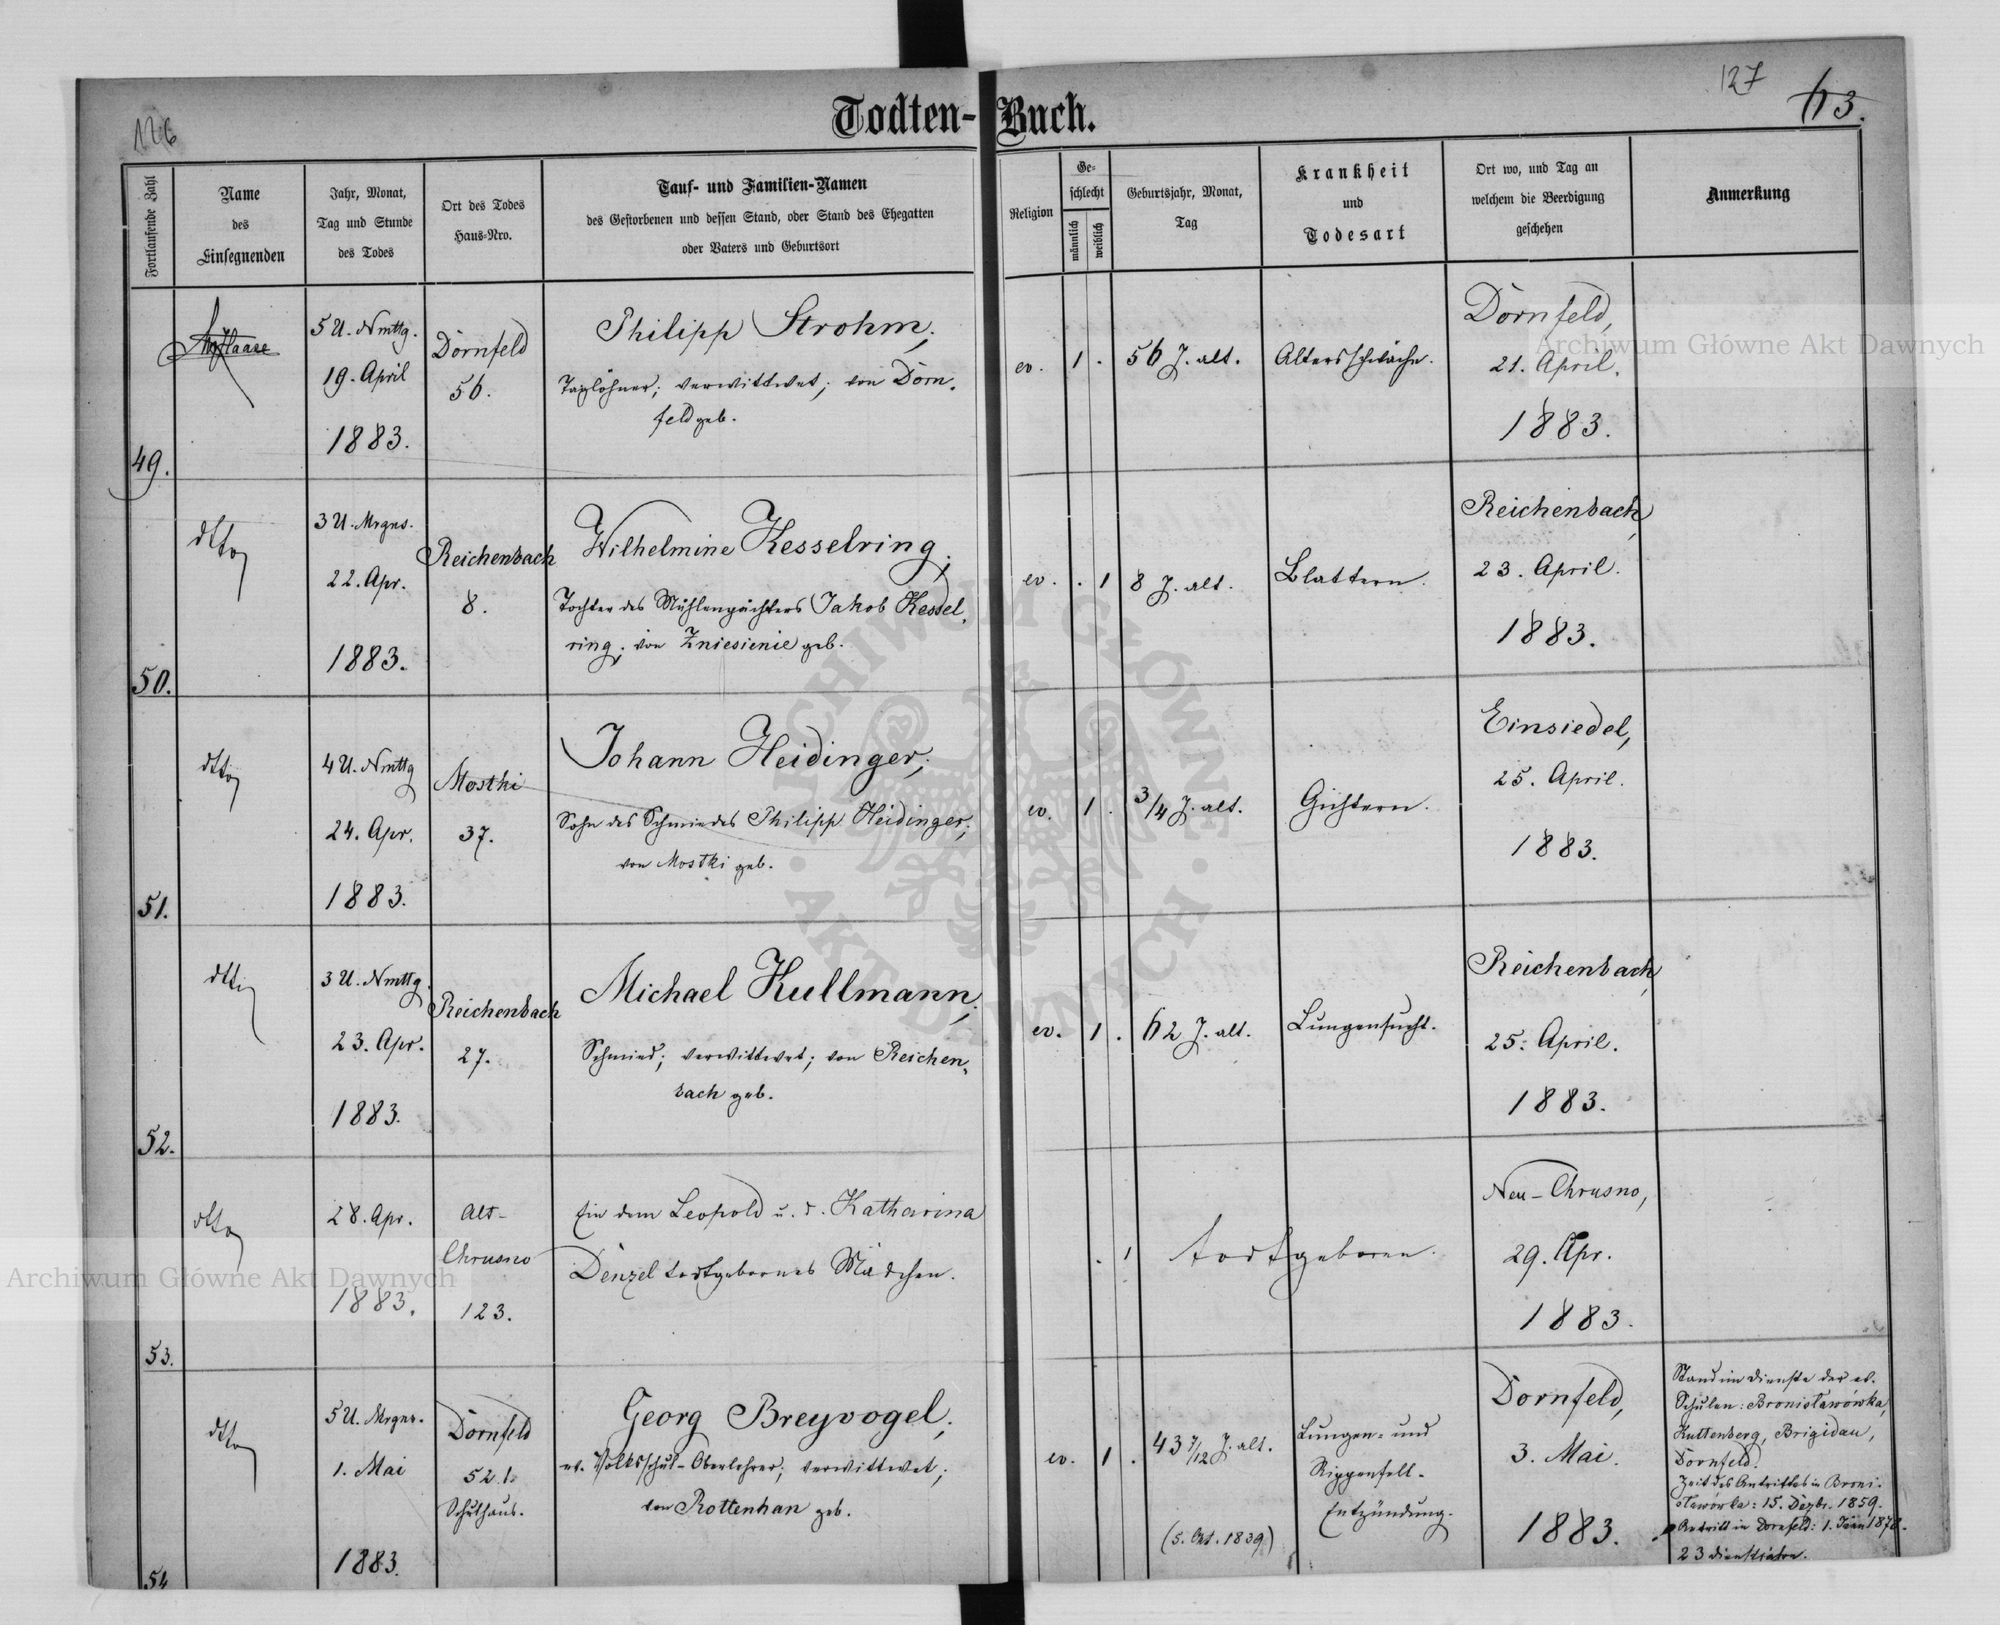 126
127
63.
Todten-Buch.
Fortlaufende Zahl
Name
des
Einsegnenden
Jahr, Monat,
Tag und Stunde
des Todes
Ort des Todes
Haus-Nro.
Tauf- und Familien-Namen
des Gestorbenen und dessen Stand, oder Stand des Ehegatten
oder Vaters und Geburtsort
Religion
Ge-
schlecht
männlich
weiblich
Geburtsjahr, Monat,
Tag
Krankheit
und
Todesart
Ort wo, und Tag an
welchem die Beerdigung
geschehen
Anmerkung
49.
5 U. Nmttg.
19. April
1883.
Dornfeld
56.
Philipp Strohm;
Taglöhner; verwittwet; von Dorn-
feld geb.
ev.
1 .
56 J. alt.
Altersschwäche.
Dornfeld,
21. April.
1883.
50.
dtto
3 U. Mrgns.
22. Apr.
1883.
Reichenbach
8.
Wilhelmine Kesselring;
Tochter des Mühlenpächters Jakob Kessel-
ring; von Zniesienie geb.
ev.
. 1
8 J. alt.
Blattern.
Reichenbach,
23. April.
1883.
51.
dtto
4 U. Nmttg
24. Apr.
1883.
Mostki
37.
Johann Heidinger;
Sohn des Schmiedes Philipp Heidinger;
von Mostki geb.
ev.
1 .
3/4 J. alt.
Gichtern.
Einsiedel,
25. April.
1883.
52.
dtto
3 U. Nmttg.
23. Apr.
1883.
Reichenbach
27.
Michael Kullmann;
Schmied; verwittwet; von Reichen-
bach geb.
ev.
1 .
62 J. alt.
Lungensucht.
Reichenbach,
25. April.
1883.
53.
dtto
28. Apr.
1883.
Alt-
Chrusno
123.
Ein dem Leopold u. d. Katharina
Denzel todtgebornes Mädchen.
. 1
todtgeboren.
Neu-Chrusno,
29. Apr.
1883.
54
dtto
5 U. Mrgns.
1. Mai
1883.
Dornfeld
52.1.
Schulhaus.
Georg Breyvogel;
ev. Volksschul-Oberlehrer; verwittwet;
von Rottenhan geb.
ev.
1 .
43 7/12 J. alt.
(5. Okt. 1839)
Lungen- und
Rippenfell-
Entzündung.
Dornfeld,
3. Mai.
1883.
Stand im Dienste der ev.
Schulen: Bronisławówka,
Kuttenberg, Brigidau,
Dornfeld.
Zeit des Antrittes in Broni-
sławówka: 15. Dezbr. 1859.
Antritt in Dornfeld: 1. Jänn 1878.
23 Dienstjahre.
Archiwum Główne Akt Dawnych
Archiwum Główne Akt Dawnych
ARCHIWUM GŁÓWNE · AKT DAWNYCH ·